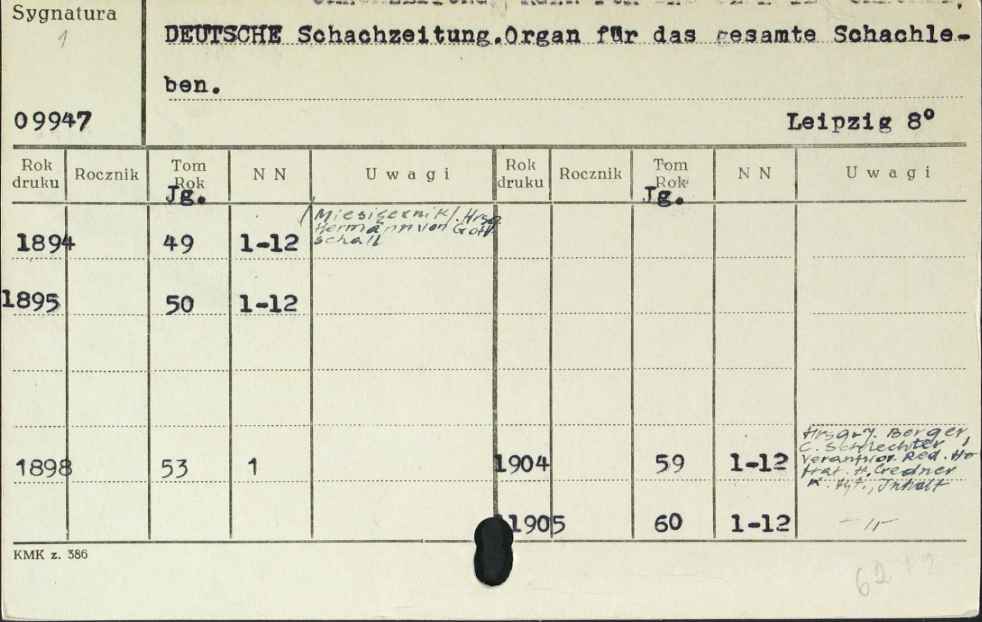 Sygnatura
1
DEUTSCHE Schachzeitung.Organ für das gesamte Schachle-
ben.
09947
Leipzig 8°
Rok druku Rocznik Tom Rok Jg. N N Uwagi Rok druku Rocznik Tom Rok Jg. N N Uwagi
1894 49 1-12 /Miesięcznik/. Hrsg
Hermann von Gott
schall
1895 50 1-12
1898 53 1 1904 59 1-12 Berger,
C. Schlechter,
verantwor. Red. Ho-
frat. H. Credner
K. Tyt., Inhalt
1905 60 1-12 -"-
KMK z. 386
62